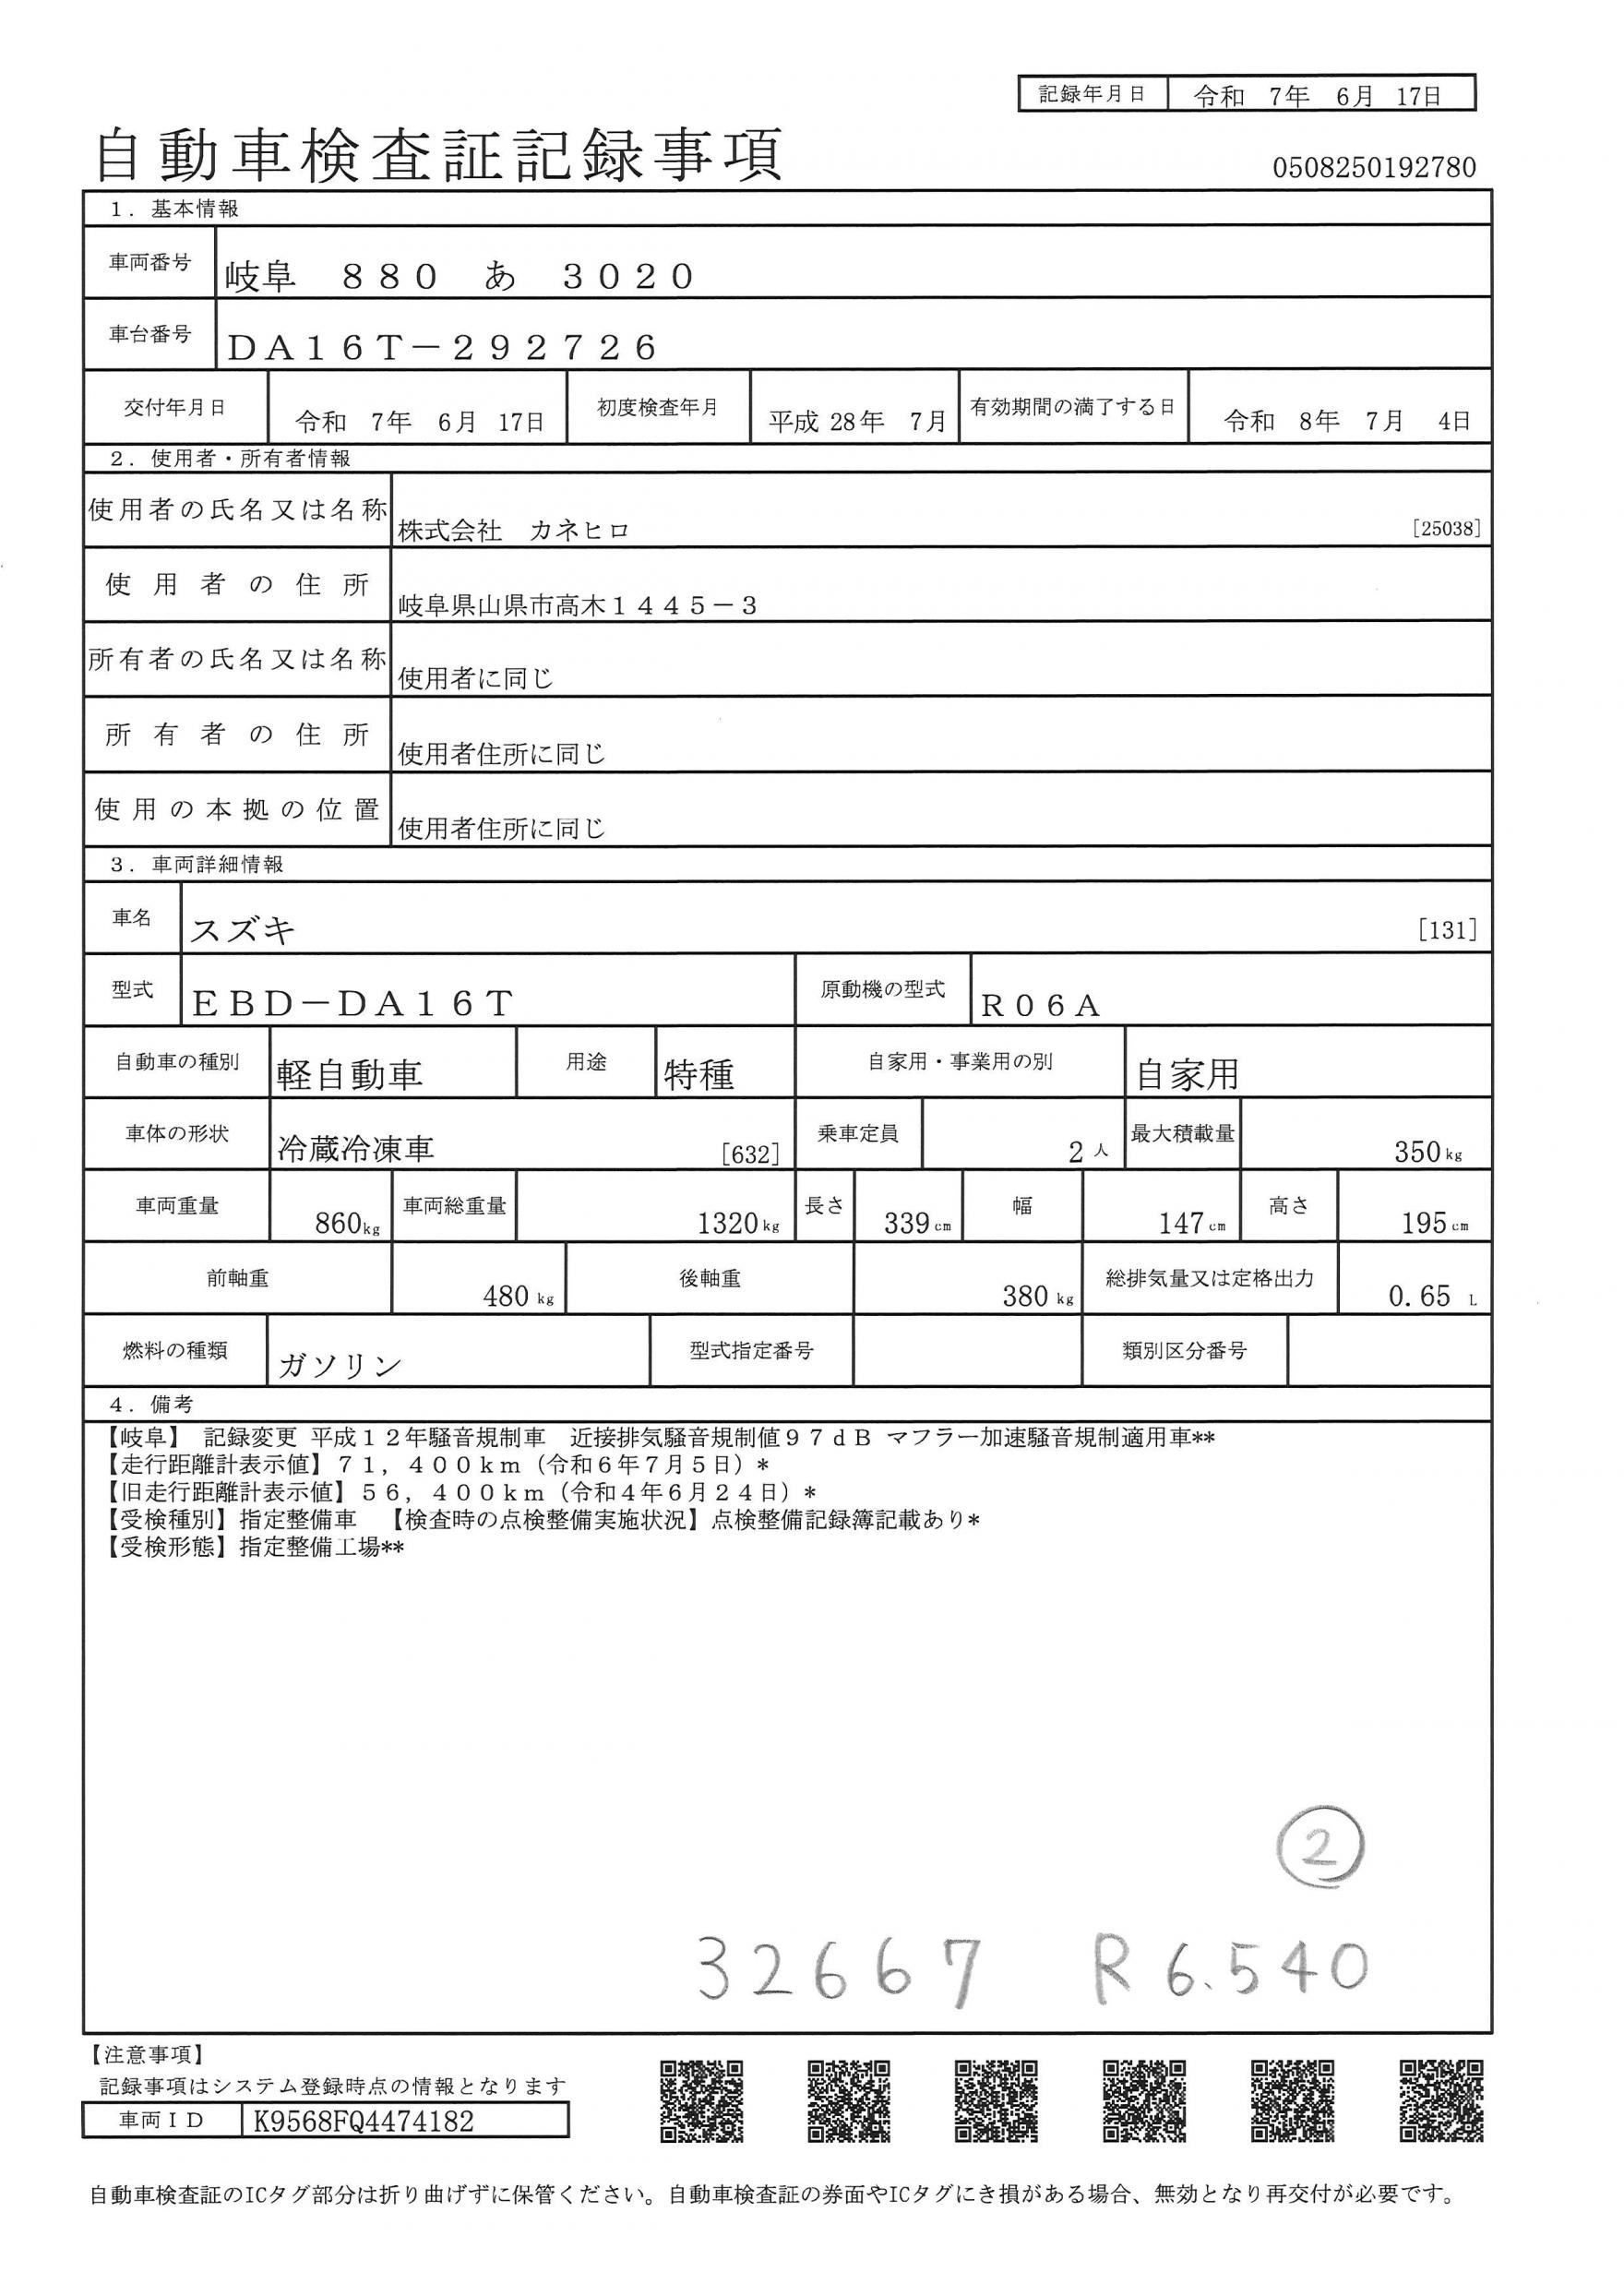 記録年月日 令和 7年 6月 17日
自動車検査証記録事項
0508250192780
1．基本情報
車両番号 岐阜 ８８０ あ ３０２０
車台番号 ＤＡ１６Ｔ－２９２７２６
交付年月日 令和 7年 6月 17日 初度検査年月 平成 28年 7月 有効期間の満了する日 令和 8年 7月 4日
2．使用者・所有者情報
使用者の氏名又は名称 株式会社 カネヒロ [25038]
使用者の住所 岐阜県山県市高木１４４５－３
所有者の氏名又は名称 使用者に同じ
所有者の住所 使用者住所に同じ
使用の本拠の位置 使用者住所に同じ
3．車両詳細情報
車名 スズキ [131]
型式 ＥＢＤ－ＤＡ１６Ｔ 原動機の型式 Ｒ０６Ａ
自動車の種別 軽自動車 用途 特種 自家用・事業用の別 自家用
車体の形状 冷蔵冷凍車 [632] 乗車定員 2人 最大積載量 350kg
車両重量 860kg 車両総重量 1320kg 長さ 339cm 幅 147cm 高さ 195cm
前軸重 480kg 後軸重 380kg 総排気量又は定格出力 0.65 L
燃料の種類 ガソリン 型式指定番号 類別区分番号
4．備考
【岐阜】 記録変更 平成１２年騒音規制車 近接排気騒音規制値９７ｄＢ マフラー加速騒音規制適用車**
【走行距離計表示値】７１，４００ｋｍ（令和６年７月５日）*
【旧走行距離計表示値】５６，４００ｋｍ（令和４年６月２４日）*
【受検種別】指定整備車 【検査時の点検整備実施状況】点検整備記録簿記載あり*
【受検形態】指定整備工場**
②
32667 R6.540
【注意事項】
記録事項はシステム登録時点の情報となります
車両ＩＤ K9568FQ4474182
自動車検査証のICタグ部分は折り曲げずに保管ください。自動車検査証の券面やICタグにき損がある場合、無効となり再交付が必要です。